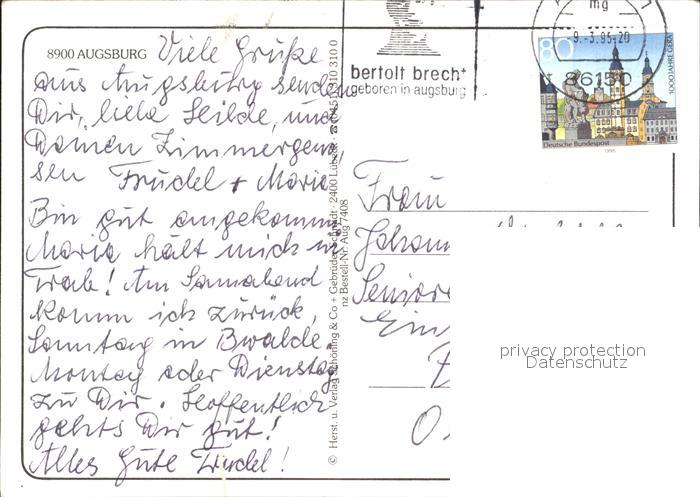 8900 AUGSBURG
Viele Grüße
aus Augsburg senden
Dir, liebe Hilde, und
Deinen Zimmergenos,
sen Trudel + Maria
Bin gut angekommen
Maria hält mich in
Trab! Am Sonnabend
komm ich zurück,
Sonntag in Bwalde.
Montag oder Dienstag
zu Dir. Hoffentlich
gehts Dir gut!
Alles Gute Trudel!
© Herst. u. Verlag Schöning & Co + Gebrüder Schmidt · 2400 Lübeck · ☎ 0451/310 310 0
nz Bestell-Nr. Aug 7408
bertolt brecht
geboren in augsburg
mg
9.-3.95-20
86150
80
1000 JAHRE GERA
Deutsche Bundespost
1995
Frau
Johann
Senior
Ein
O.
privacy protection
Datenschutz